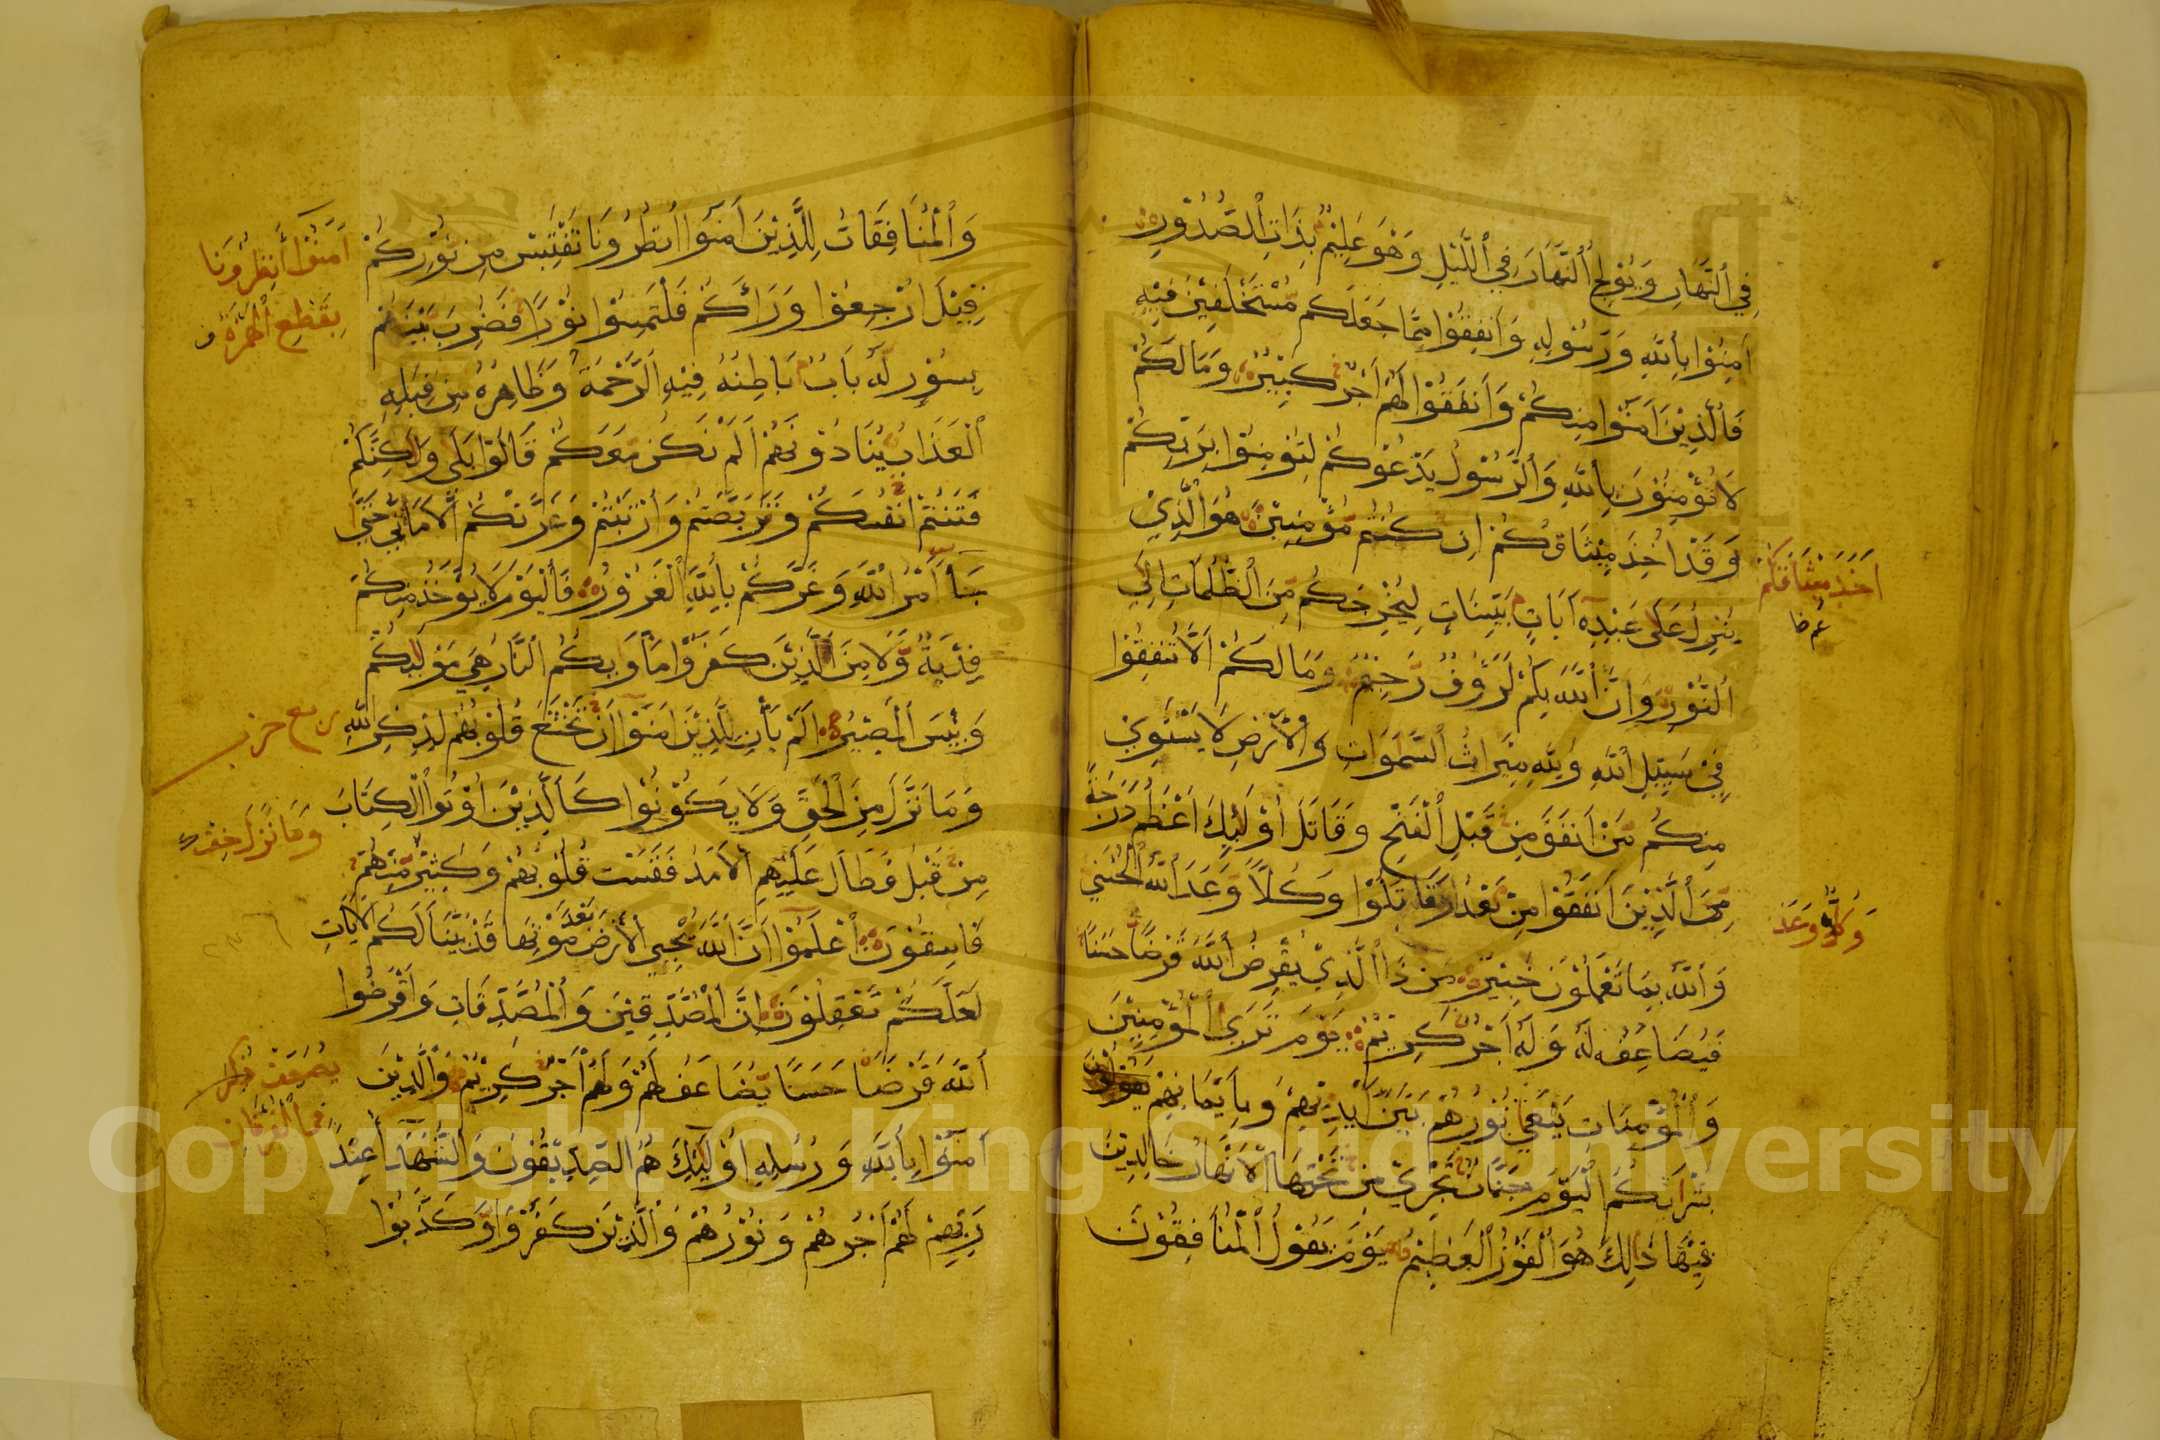 فِي ٱلنَّهَارِ وَيُوْلِجُ ٱلنَّهَارَ فِي ٱلَّيْلِ وَهُوَ عَلِيْمٌ بِذَاتِ ٱلصُّدُوْرِ
اَمِنُوْا بِٱللَّهِ وَرَسُوْلِهِ وَاَنْفِقُوْا مِمَّا جَعَلَكُم مُّسْتَخْلَفِيْنَ فِيْهِ
فَٱلَّذِيْنَ اَمَنُوْا مِنكُمْ وَاَنفَقُوْا لَهُمْ اَجْرٌ كَبِيْرٌ وَمَا لَكُمْ
لَا تُؤْمِنُوْنَ بِٱللَّهِ وَٱلرَّسُوْلُ يَدْعُوْكُمْ لِتُؤْمِنُوْا بِرَبِّكُمْ
وَقَدْ اُخِذَ مِيْثَاقُكُمْ اِن كُنتُم مُّؤْمِنِيْنَ هُوَ ٱلَّذِيْ
اَخَذَ مِيْثَاقَكُمْ
يُنَزِّلُ عَلَى عَبْدِهِ اَيَاتٍ بَيِّنَاتٍ لِيُخْرِجَكُم مِّنَ ٱلظُّلُمَاتِ اِلَى
ٱلنُّوْرِ وَاِنَّ ٱللَّهَ بِكُمْ لَرَؤُفٌ رَّحِيْمٌ وَمَا لَكُمْ اَلَّا تُنفِقُوْا
فِيْ سَبِيْلِ ٱللَّهِ وَلِلَّهِ مِيْرَاثُ ٱلسَّمَوَاتِ وَٱلْاَرْضِ لَا يَسْتَوِيْ
مِنكُم مَّنْ اَنفَقَ مِن قَبْلِ ٱلْفَتْحِ وَقَاتَلَ اُوْلَئِكَ اَعْظَمُ دَرَجَةً
مِّنَ ٱلَّذِيْنَ اَنفَقُوْا مِنْ بَعْدُ وَقَاتَلُوْا وَكُلًّا وَّعَدَ ٱللَّهُ ٱلْحُسْنَى
وَكُلٌّ وَعَدَ
وَٱللَّهُ بِمَا تَعْمَلُوْنَ خَبِيْرٌ مَن ذَا ٱلَّذِيْ يُقْرِضُ ٱللَّهَ قَرْضًا حَسَنًا
فَيُضَاعِفُهُ لَهُ وَلَهُ اَجْرٌ كَرِيْمٌ يَوْمَ تَرَى ٱلْمُؤْمِنِيْنَ
وَٱلْمُؤْمِنَاتِ يَسْعَى نُوْرُهُمْ بَيْنَ اَيْدِيْهِمْ وَبِاَيْمَانِهِمْ
بُشْرَاكُمُ ٱلْيَوْمَ جَنَّاتٌ تَجْرِيْ مِن تَحْتِهَا ٱلْاَنْهَارُ خَالِدِيْنَ
فِيْهَا ذَلِكَ هُوَ ٱلْفَوْزُ ٱلْعَظِيْمُ يَوْمَ يَقُوْلُ ٱلْمُنَافِقُوْنَ
وَٱلْمُنَافِقَاتُ لِلَّذِيْنَ اَمَنُوْا ٱنظُرُوْنَا نَقْتَبِسْ مِن نُّوْرِكُمْ
اَمَنُوْا أَنظِرُوْنَا
بِقَطْعِ ٱلْهَمْزَةِ
قِيْلَ ارْجِعُوْا وَرَاءَكُمْ فَلْتَمِسُوْا نُوْرًا فَضُرِبَ بَيْنَهُم
بِسُوْرٍ لَّهُ بَابٌ بَاطِنُهُ فِيْهِ ٱلرَّحْمَةُ وَظَاهِرُهُ مِن قِبَلِهِ
ٱلْعَذَابُ يُنَادُوْنَهُمْ اَلَمْ نَكُن مَّعَكُمْ قَالُوْا بَلَى وَلَكِنَّكُمْ
فَتَنتُمْ اَنفُسَكُمْ وَتَرَبَّصْتُمْ وَارْتَبْتُمْ وَغَرَّتْكُمُ ٱلْاَمَانِيُّ حَتَّى
جَاءَ اَمْرُ ٱللَّهِ وَغَرَّكُمْ بِٱللَّهِ ٱلْغَرُوْرُ فَٱلْيَوْمَ لَا يُؤْخَذُ مِنكُمْ
فِدْيَةٌ وَّلَا مِنَ ٱلَّذِيْنَ كَفَرُوْا مَأْوَيكُمُ ٱلنَّارُ هِيَ مَوْلَيكُمْ
وَبِئْسَ ٱلْمَصِيْرُ اَلَمْ يَأْنِ لِلَّذِيْنَ اَمَنُوْا اَن تَخْشَعَ قُلُوْبُهُمْ لِذِكْرِ ٱللَّهِ
ربع حزب
وَمَا نَزَلَ مِنَ ٱلْحَقِّ وَلَا يَكُوْنُوْا كَٱلَّذِيْنَ اُوْتُوا ٱلْكِتَابَ
وَمَا نَزَلَ خف
مِنْ قَبْلُ فَطَالَ عَلَيْهِمُ ٱلْاَمَدُ فَقَسَتْ قُلُوْبُهُمْ وَكَثِيْرٌ مِّنْهُمْ
فَاسِقُوْنَ ٱعْلَمُوْا اَنَّ ٱللَّهَ يُحْيِي ٱلْاَرْضَ بَعْدَ مَوْتِهَا قَدْ بَيَّنَّا لَكُمُ ٱلْاَيَاتِ
لَعَلَّكُمْ تَعْقِلُوْنَ اِنَّ ٱلْمُصَّدِّقِيْنَ وَٱلْمُصَّدِّقَاتِ وَاَقْرَضُوا
ٱللَّهَ قَرْضًا حَسَنًا يُّضَاعَفُ لَهُمْ وَلَهُمْ اَجْرٌ كَرِيْمٌ وَٱلَّذِيْنَ
اَمَنُوْا بِٱللَّهِ وَرُسُلِهِ اُوْلَئِكَ هُمُ ٱلصِّدِّيْقُوْنَ وَٱلشُّهَدَاءُ عِنْدَ
رَبِّهِمْ لَهُمْ اَجْرُهُمْ وَنُوْرُهُمْ وَٱلَّذِيْنَ كَفَرُوْا وَكَذَّبُوْا
Copyright © King Saud University